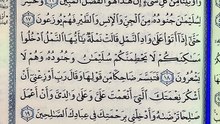 وَأُوتِينَا مِن كُلِّ شَيْءٍ إِنَّ هَٰذَا لَهُوَ الْفَضْلُ الْمُبِينُ ١٦ وَحُشِرَ
لِسُلَيْمَٰنَ جُنُودُهُ مِنَ الْجِنِّ وَالْإِنسِ وَالطَّيْرِ فَهُمْ يُوزَعُونَ ١٧
حَتَّىٰ إِذَا أَتَوْا عَلَىٰ وَادِ النَّمْلِ قَالَتْ نَمْلَةٌ يَا أَيُّهَا النَّمْلُ ادْخُلُوا
مَسَاكِنَكُمْ لَا يَحْطِمَنَّكُمْ سُلَيْمَٰنُ وَجُنُودُهُ وَهُمْ لَا
يَشْعُرُونَ ١٨ فَتَبَسَّمَ ضَاحِكًا مِّن قَوْلِهَا وَقَالَ رَبِّ أَوْزِعْنِي أَنْ
أَشْكُرَ نِعْمَتَكَ الَّتِي أَنْعَمْتَ عَلَيَّ وَعَلَىٰ وَالِدَيَّ وَأَنْ أَعْمَلَ
صَالِحًا تَرْضَاهُ وَأَدْخِلْنِي بِرَحْمَتِكَ فِي عِبَادِكَ الصَّالِحِينَ ١٩